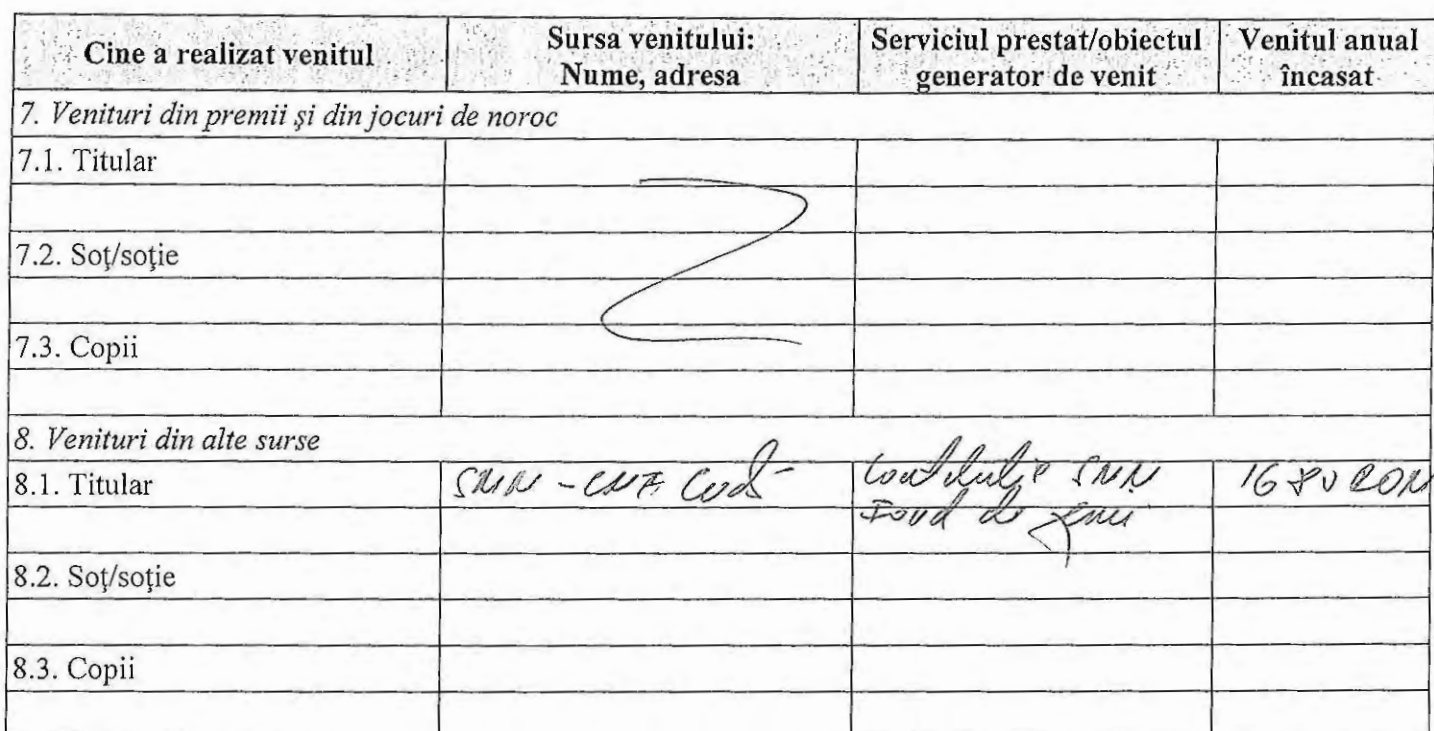 Cine a realizat venitul
Sursa venitului:
Nume, adresa
Serviciul prestat/obiectul
generator de venit
Venitul anual
încasat
7. Venituri din premii şi din jocuri de noroc
7.1. Titular
7.2. Soţ/soţie
7.3. Copii
8. Venituri din alte surse
8.1. Titular
SNN - CNE
SNN
Fond de
RON
8.2. Soţ/soţie
8.3. Copii